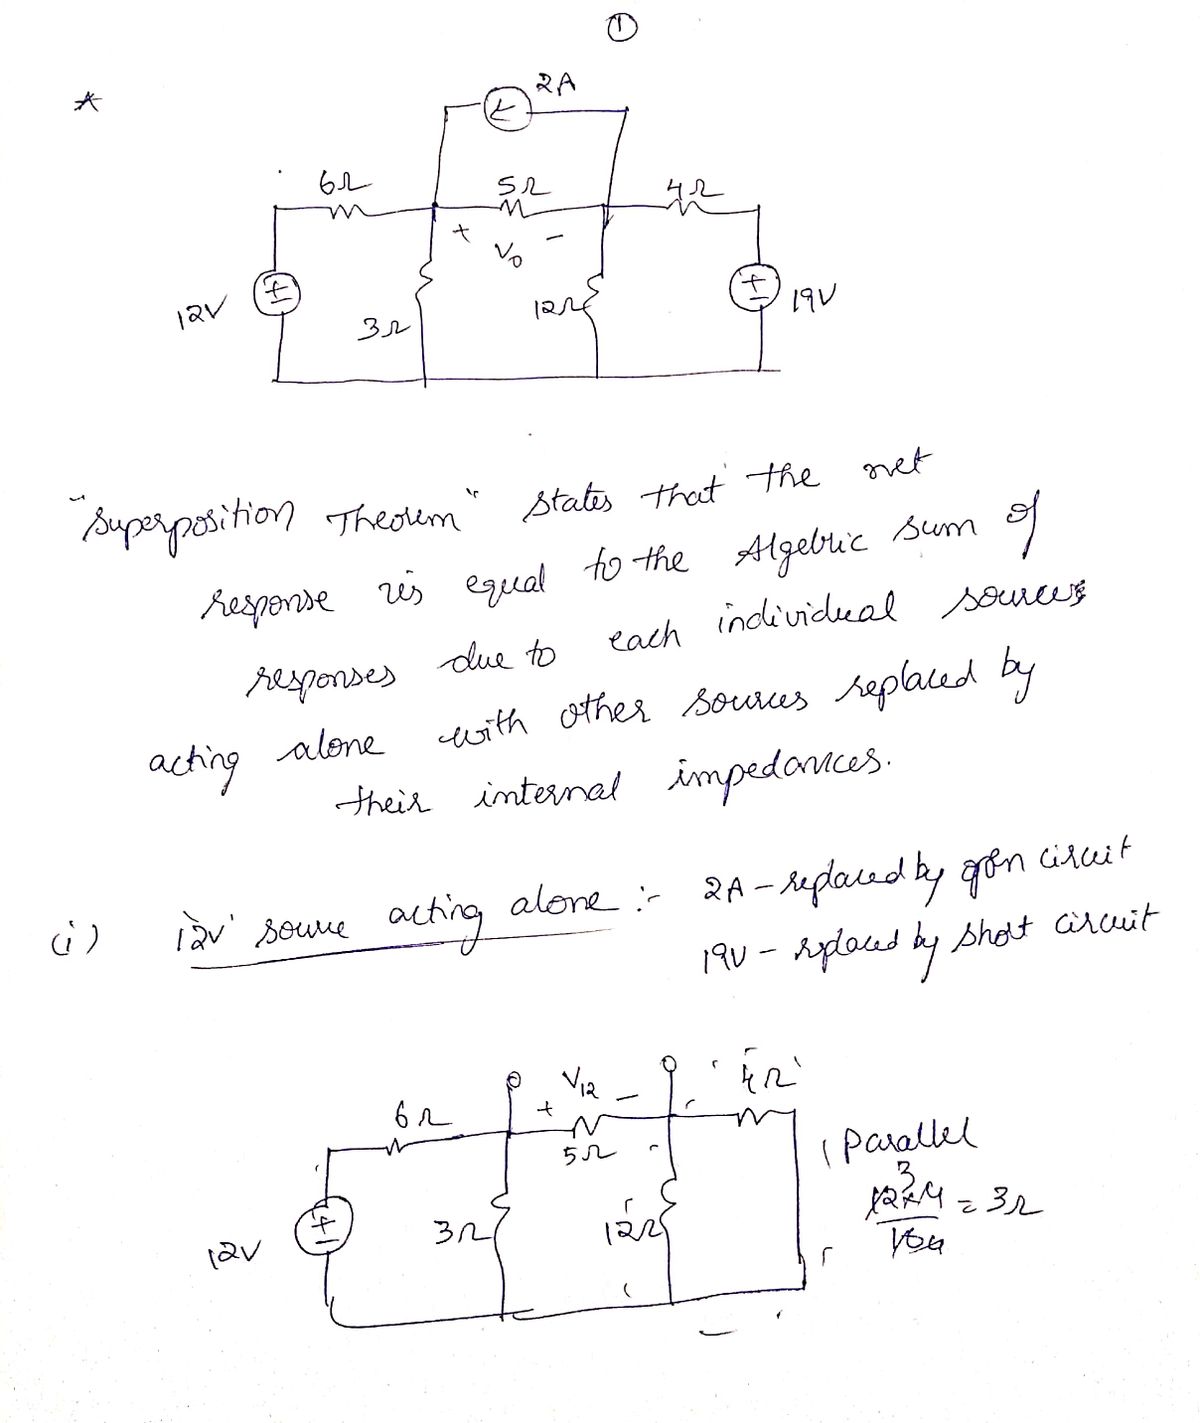 ①
*
2A
6Ω 5Ω 4Ω
+ V₀ −
12V 3Ω 12Ω 19V
"Superposition Theorem" states that the net
response is equal to the Algebric sum of
responses due to each individual sources
acting alone with other sources replaced by
their internal impedances.
(i) 12V source acting alone :- 2A - replaced by open circuit
19V - replaced by short circuit
+ V₁₂ − 4Ω
6Ω 5Ω
Parallel
12V 3Ω 12Ω
3
12×4 = 3Ω
164